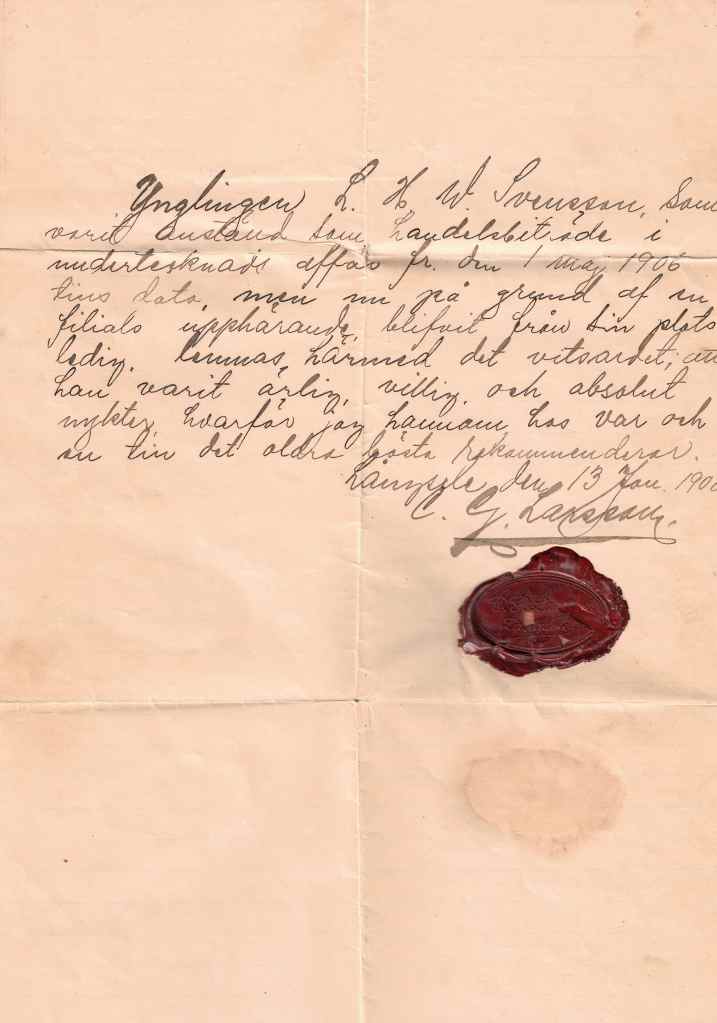 Ynglingen L. H. W. Svensson, Som
varit anstäld som handelsbiträde i
undertecknads affär fr. den 1 maj 1906
tills dato, men nu på grund af en
filials upphörande, blifvit från sin plats
ledig, lemnas härmed det vitsordet, att
han varit ärlig, villig och absolut
nykter, hvarför jag honom hos var och
en till det aldra bästa rekommenderar.
Långsele den 13 Jan. 190
C. G. Larsson.